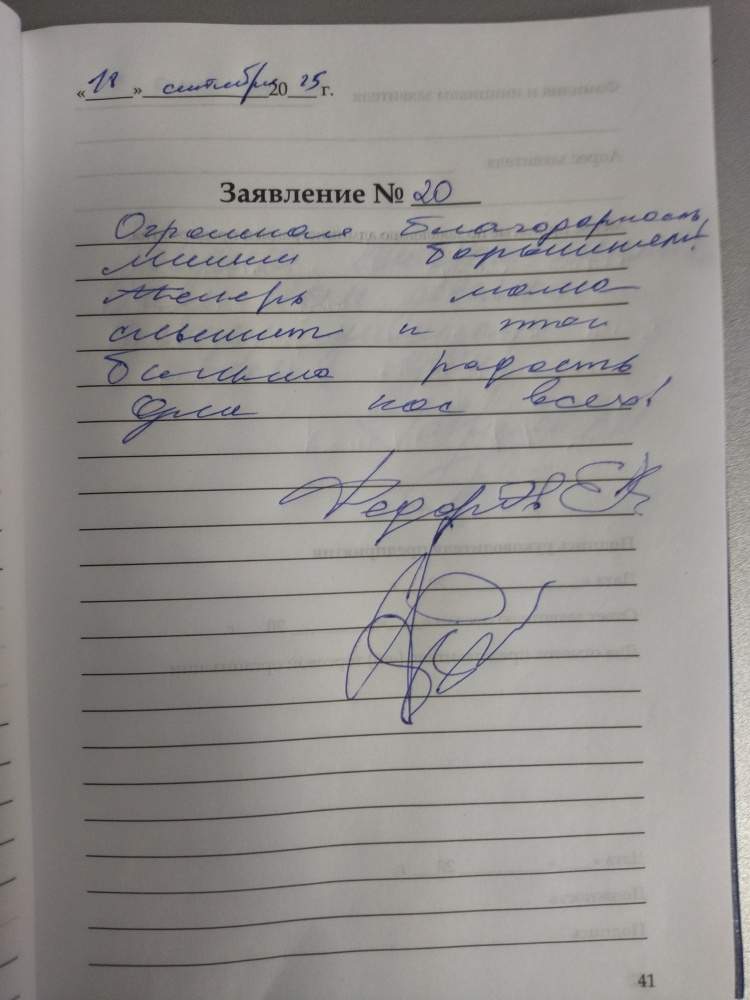 «18» сентября 2025 г.
Заявление № 20
Огромная благодарность
милым барышням!
Теперь мама
слышит и это
большая радость
для нас всех!
41